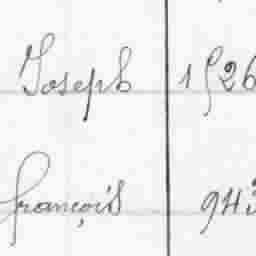 Joseph 1526
François 943